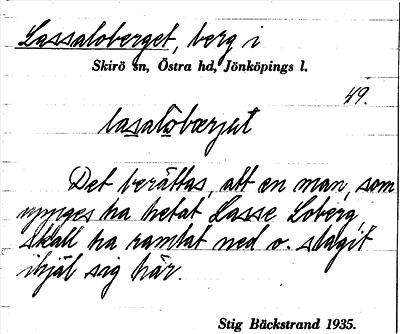 Lassaloberget, berg i
Skirö sn, Östra hd, Jönköpings l.
49.
lasalobærjət
Det berättas, att en man, som
uppges ha hetat Lasse Loberg,
skall ha ramlat ned o. slagit
ihjäl sig här.
Stig Bäckstrand 1935.